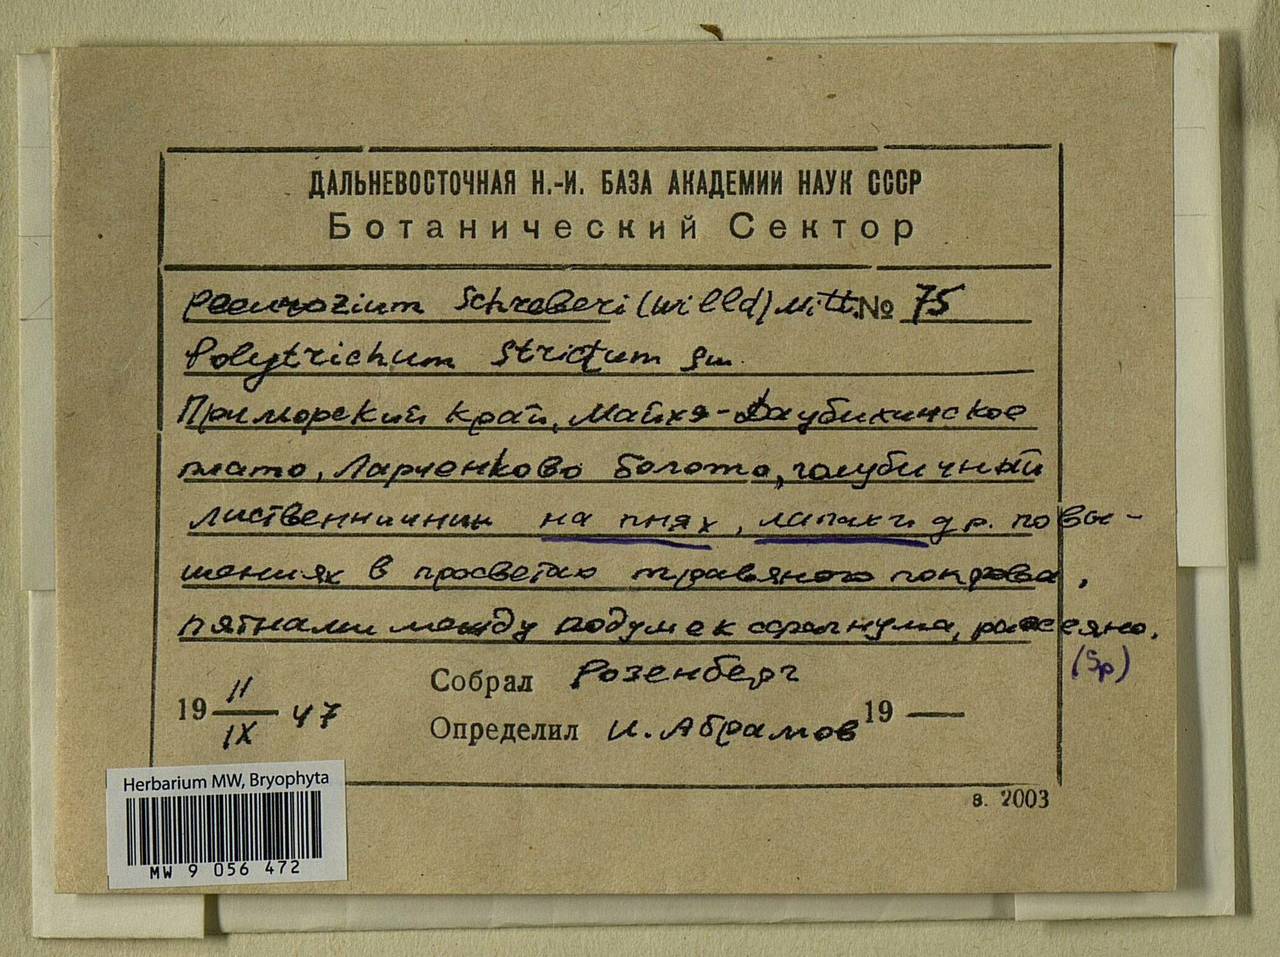 ДАЛЬНЕВОСТОЧНАЯ Н.-И. БАЗА АКАДЕМИИ НАУК СССР
Ботанический Сектор
Pleurozium Schreberi (Willd) Mitt. № 75
Polytrichum strictum Sm.
Приморский край, Майхэ-Даубихинское
плато, Ларченково болото, голубичный
лиственничник на пнях, лапах и др. повы-
шениях в просветах травяного покрова,
пятнами между подушек сфагнума, рассеяно.
(Sp)
Собрал Розенберг
19 11/IX 47
Определил И. Абрамов 19 —
Herbarium MW, Bryophyta
MW 9 056 472
в. 2003